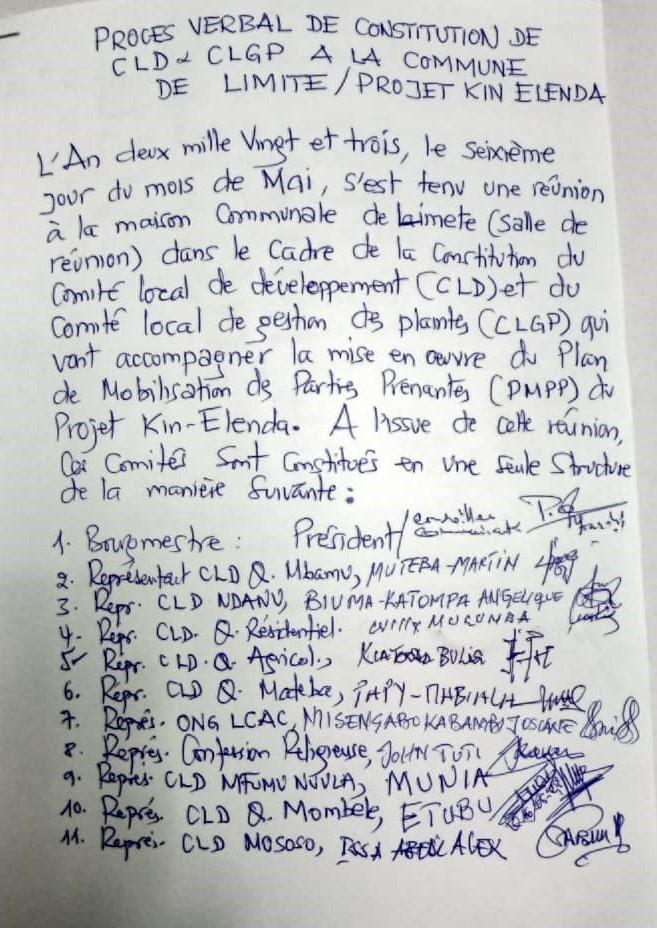 PROCES VERBAL DE CONSTITUTION DE
CLD & CLGP A LA COMMUNE
DE LIMETE / PROJET KIN ELENDA
L'An deux mille Vingt et trois, le Seixième
jour du mois de Mai, s'est tenu une réunion
à la maison Communale de Limete (salle de
réunion) dans le Cadre de la Constitution du
Comité local de développement (CLD) et du
Comité local de gestion des plaintes (CLGP) qui
vont accompagner la mise en œuvre du Plan
de Mobilisation des Parties Prenantes (PMPP) du
Projet Kin-Elenda. A l'issue de cette réunion,
Ces Comités sont Constitués en une seule Structure
de la manière Suivante :
1. Bourgmestre : Président / Conseiller
2. Représentant CLD Q. Mbamu, MUTEBA-MARTIN
3. Repr. CLD NDANU, BIUMA-KATOMPA ANGELIQUE
4. Repr. CLD. Q. Résidentiel. WILLY
5. Répr. CLD. Q. Agricol.,
6. Répr. CLD Q. Mateba, PAPY-MABIALA
7. Représ. ONG LCAC, MISENGABO KABAMBI JOSIANE
8. Représ. Confession Religieuse, JOHN TUTI
9. Représ. CLD MFUMU NVULA, MUNIA
10. Représ. CLD Q. Mombele, ETUBU
11. Représ. CLD MOSOSO, ALEX